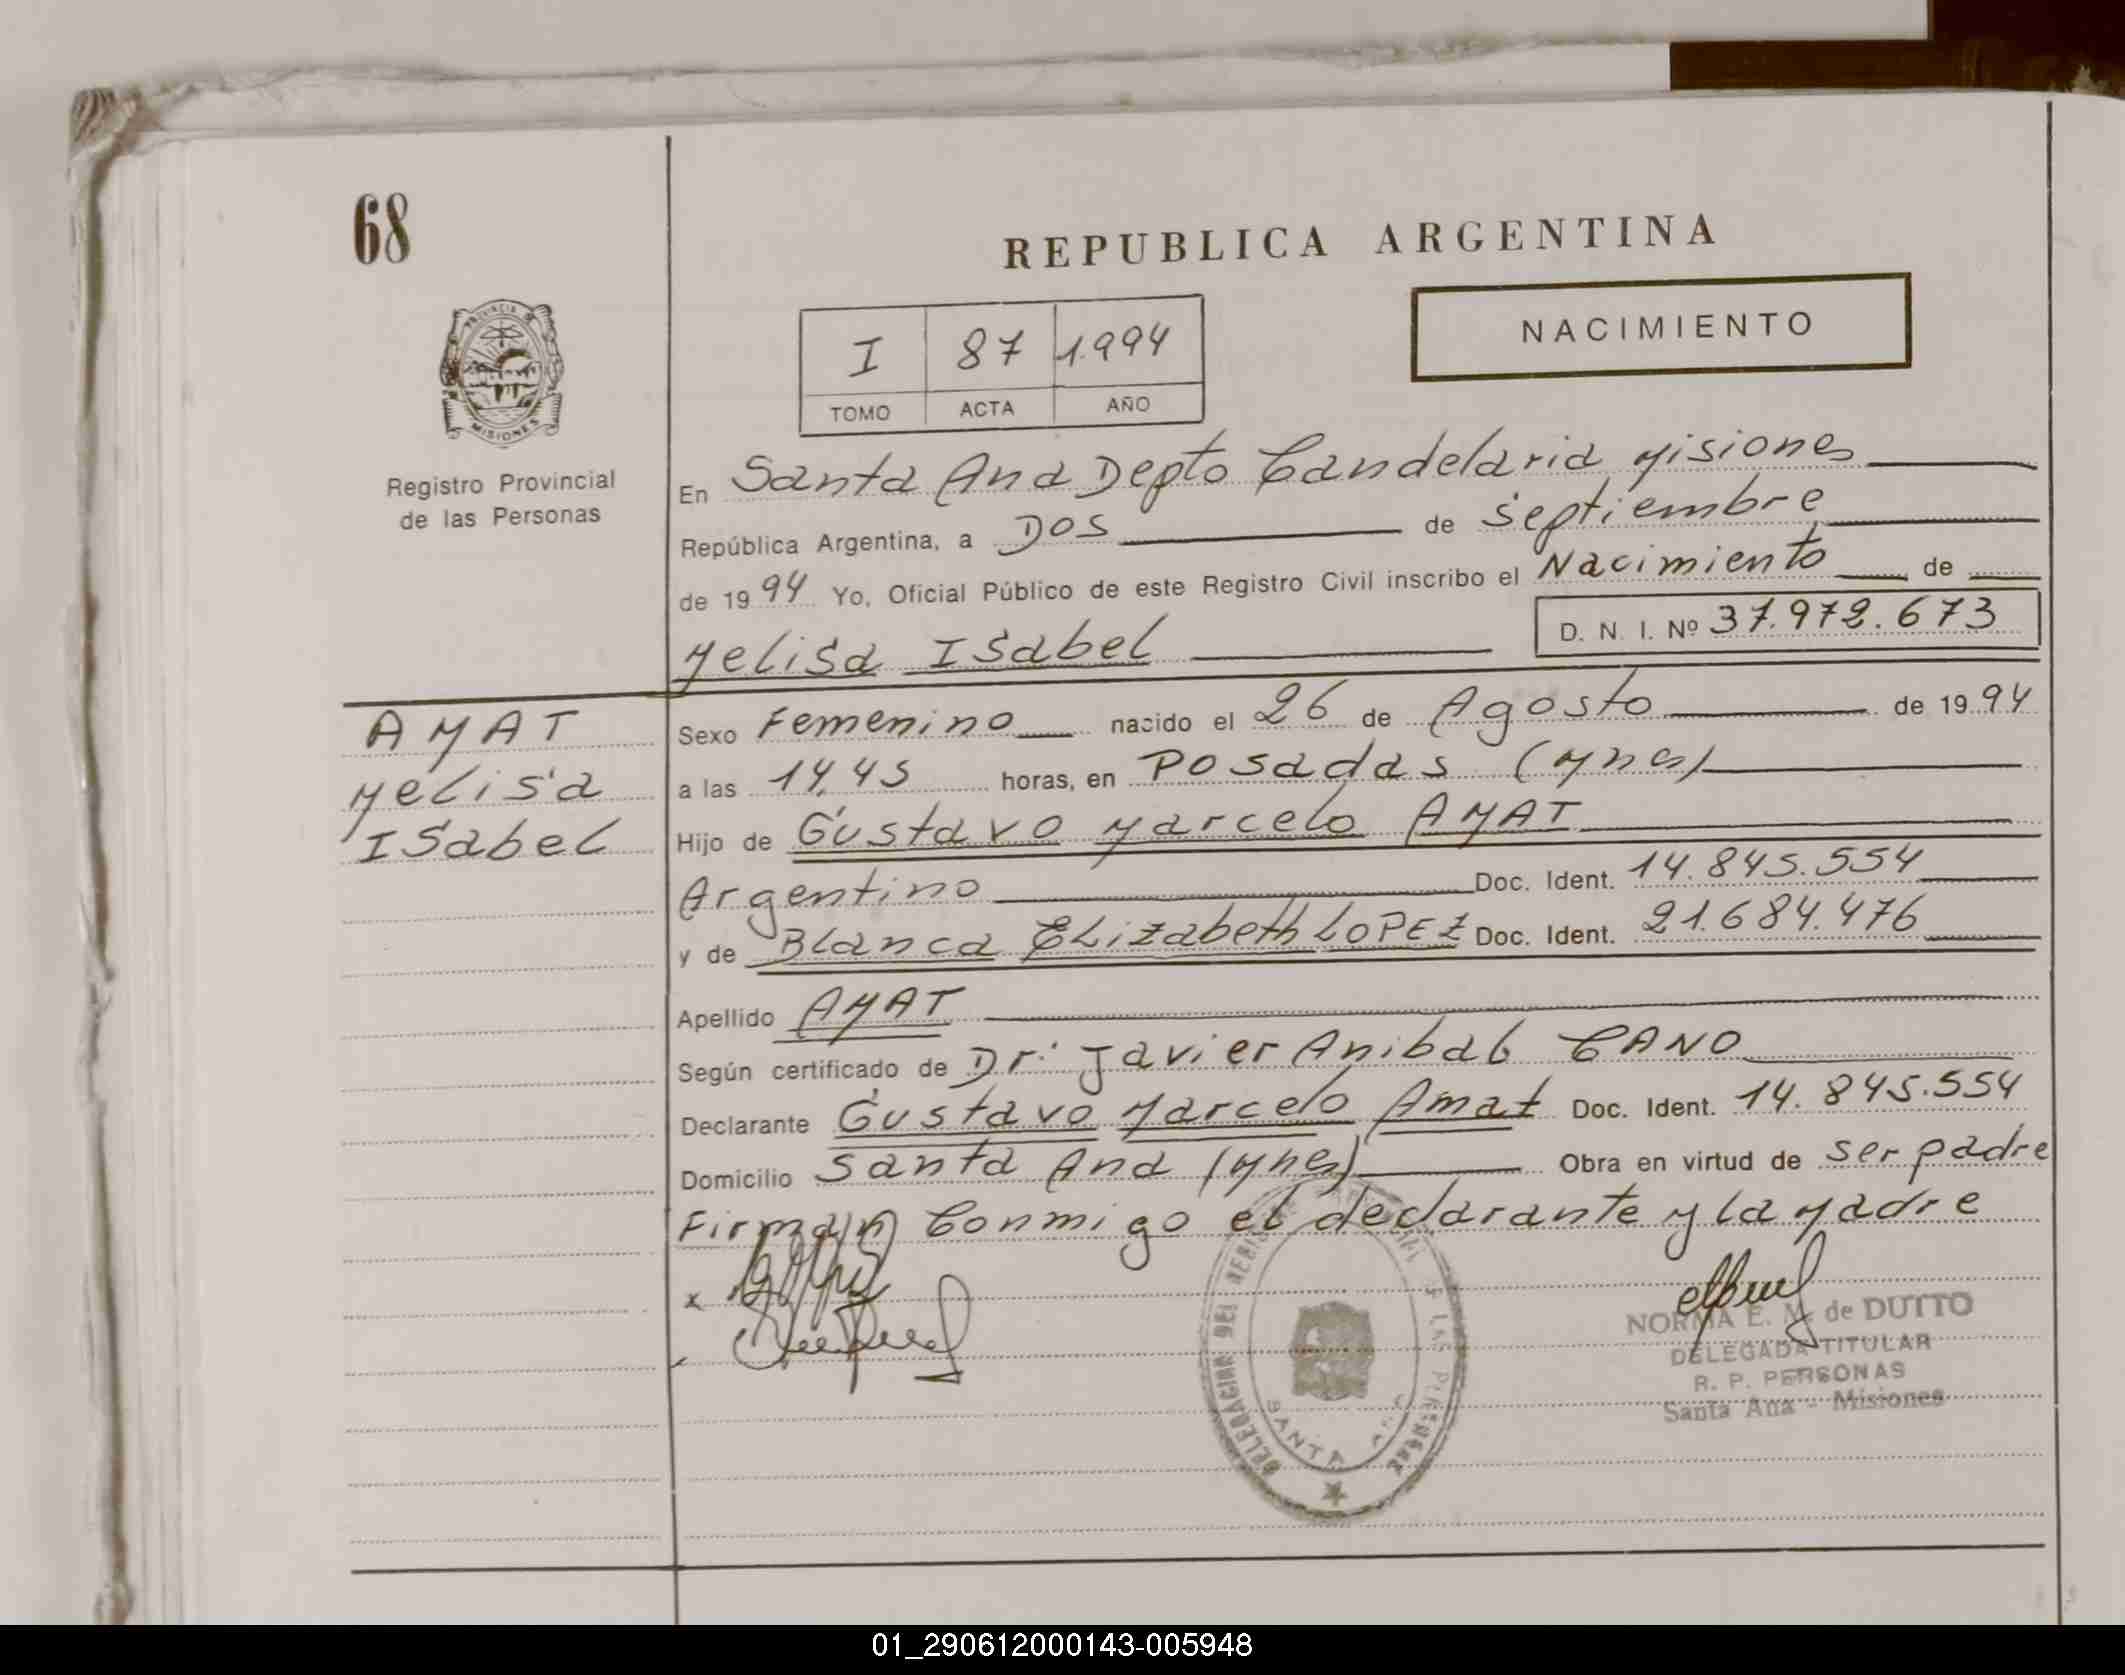 68
REPUBLICA ARGENTINA
PROVINCIA DE
MISIONES
I 87 1.994
TOMO ACTA AÑO
NACIMIENTO
Registro Provincial
de las Personas
En Santa Ana Depto Candelaria Misiones
República Argentina, a Dos de Septiembre
de 1994 Yo, Oficial Público de este Registro Civil inscribo el Nacimiento de
Melisa Isabel D. N. I. Nº 37.972.673
AMAT
Melisa
Isabel
Sexo Femenino nacido el 26 de Agosto de 1994
a las 14,45 horas, en Posadas (Mnes)
Hijo de Gustavo Marcelo AMAT
Argentino Doc. Ident. 14.845.554
y de Blanca Elizabeth LOPEZ Doc. Ident. 21.684.476
Apellido AMAT
Según certificado de Dr. Javier Anibal CANO
Declarante Gustavo Marcelo Amat Doc. Ident. 14.845.554
Domicilio Santa Ana (Mnes) Obra en virtud de ser padre
Firman Conmigo el declarante y la Madre
x
DELEGACION DEL REGISTRO PROVINCIAL DE LAS PERSONAS
SANTA ANA
NORMA E. M. de DUTTO
DELEGADA TITULAR
R. P. PERSONAS
Santa Ana - Misiones
01_290612000143-005948